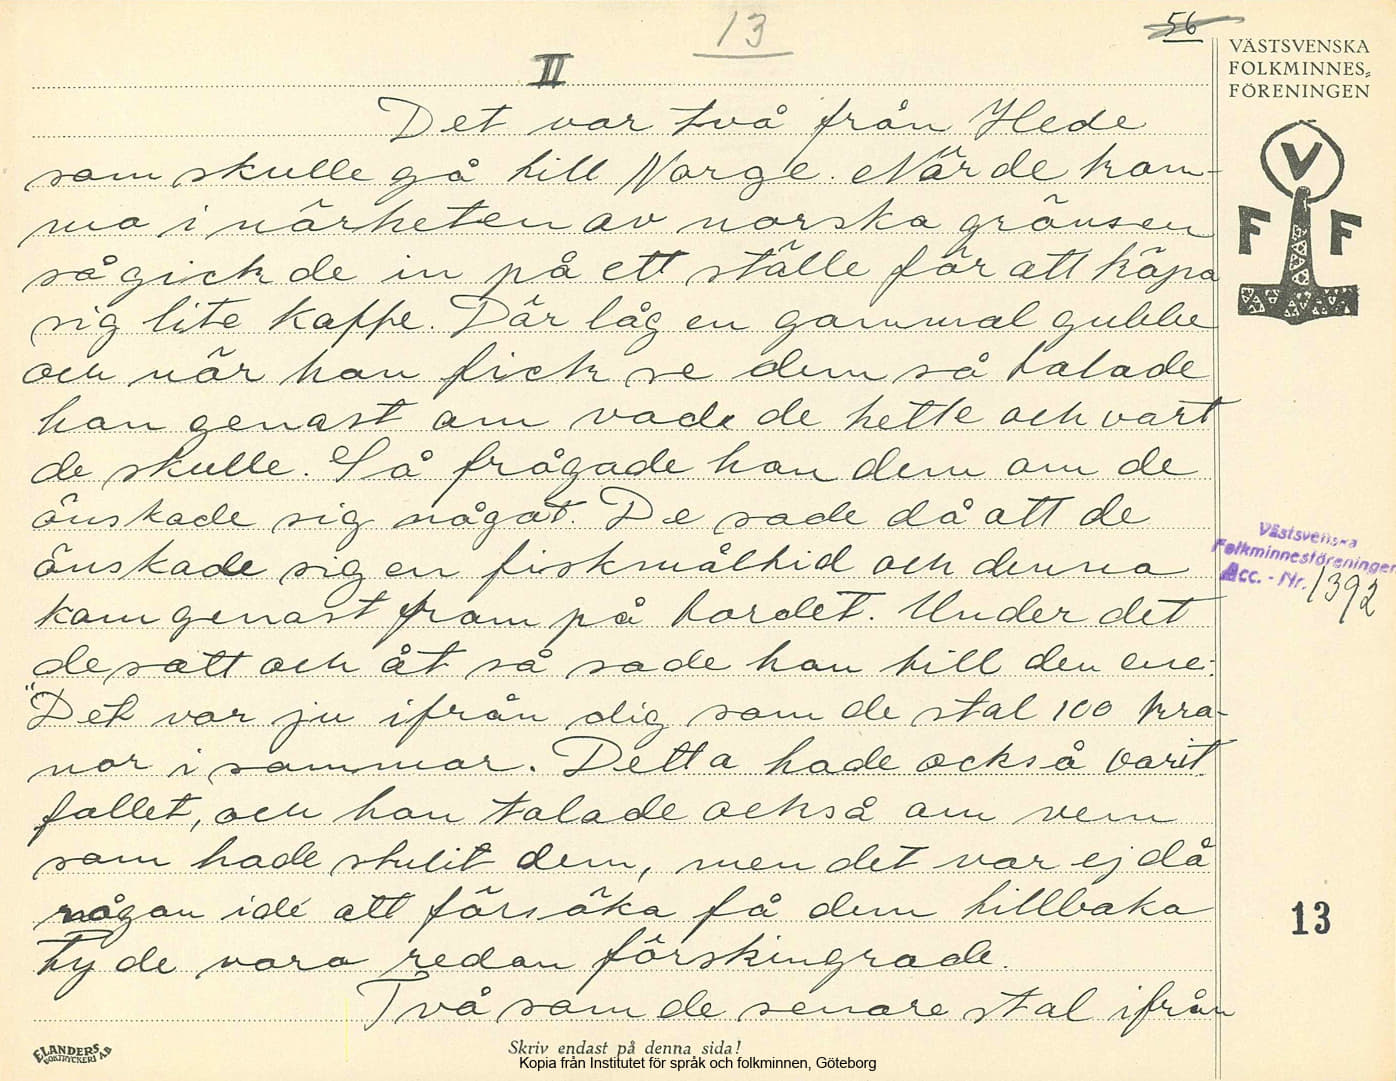 13
56
II
VÄSTSVENSKA
FOLKMINNES-
FÖRENINGEN
V
F F
Det var två från Hede
som skulle gå till Norge. När de kom-
mo i närheten av norska gränsen
så gick de in på ett ställe för att köpa
sig lite kaffe. Där låg en gammal gubbe
och när han fick se dem så talade
han genast om vad de hette och vart
de skulle. Så frågade han dem om de
önskade sig något. De sade då att de
önskade sig en fiskmåltid och denna
kom genast fram på bordet. Under det
de satt och åt så sade han till den ene:
"Det var ju ifrån dig som de stal 100 kro-
nor i sommar. Detta hade också varit
fallet, och han talade också om vem
som hade stulit dem, men det var ej då
någon idé att försöka få dem tillbaka
ty de voro redan förskingrade.
Två som de senare stal ifrån
Västsvenska
Folkminnesföreningen
Acc. - Nr. 1392
13
ELANDERS
BOKTRYCKERI A.B
Skriv endast på denna sida!
Kopia från Institutet för språk och folkminnen, Göteborg